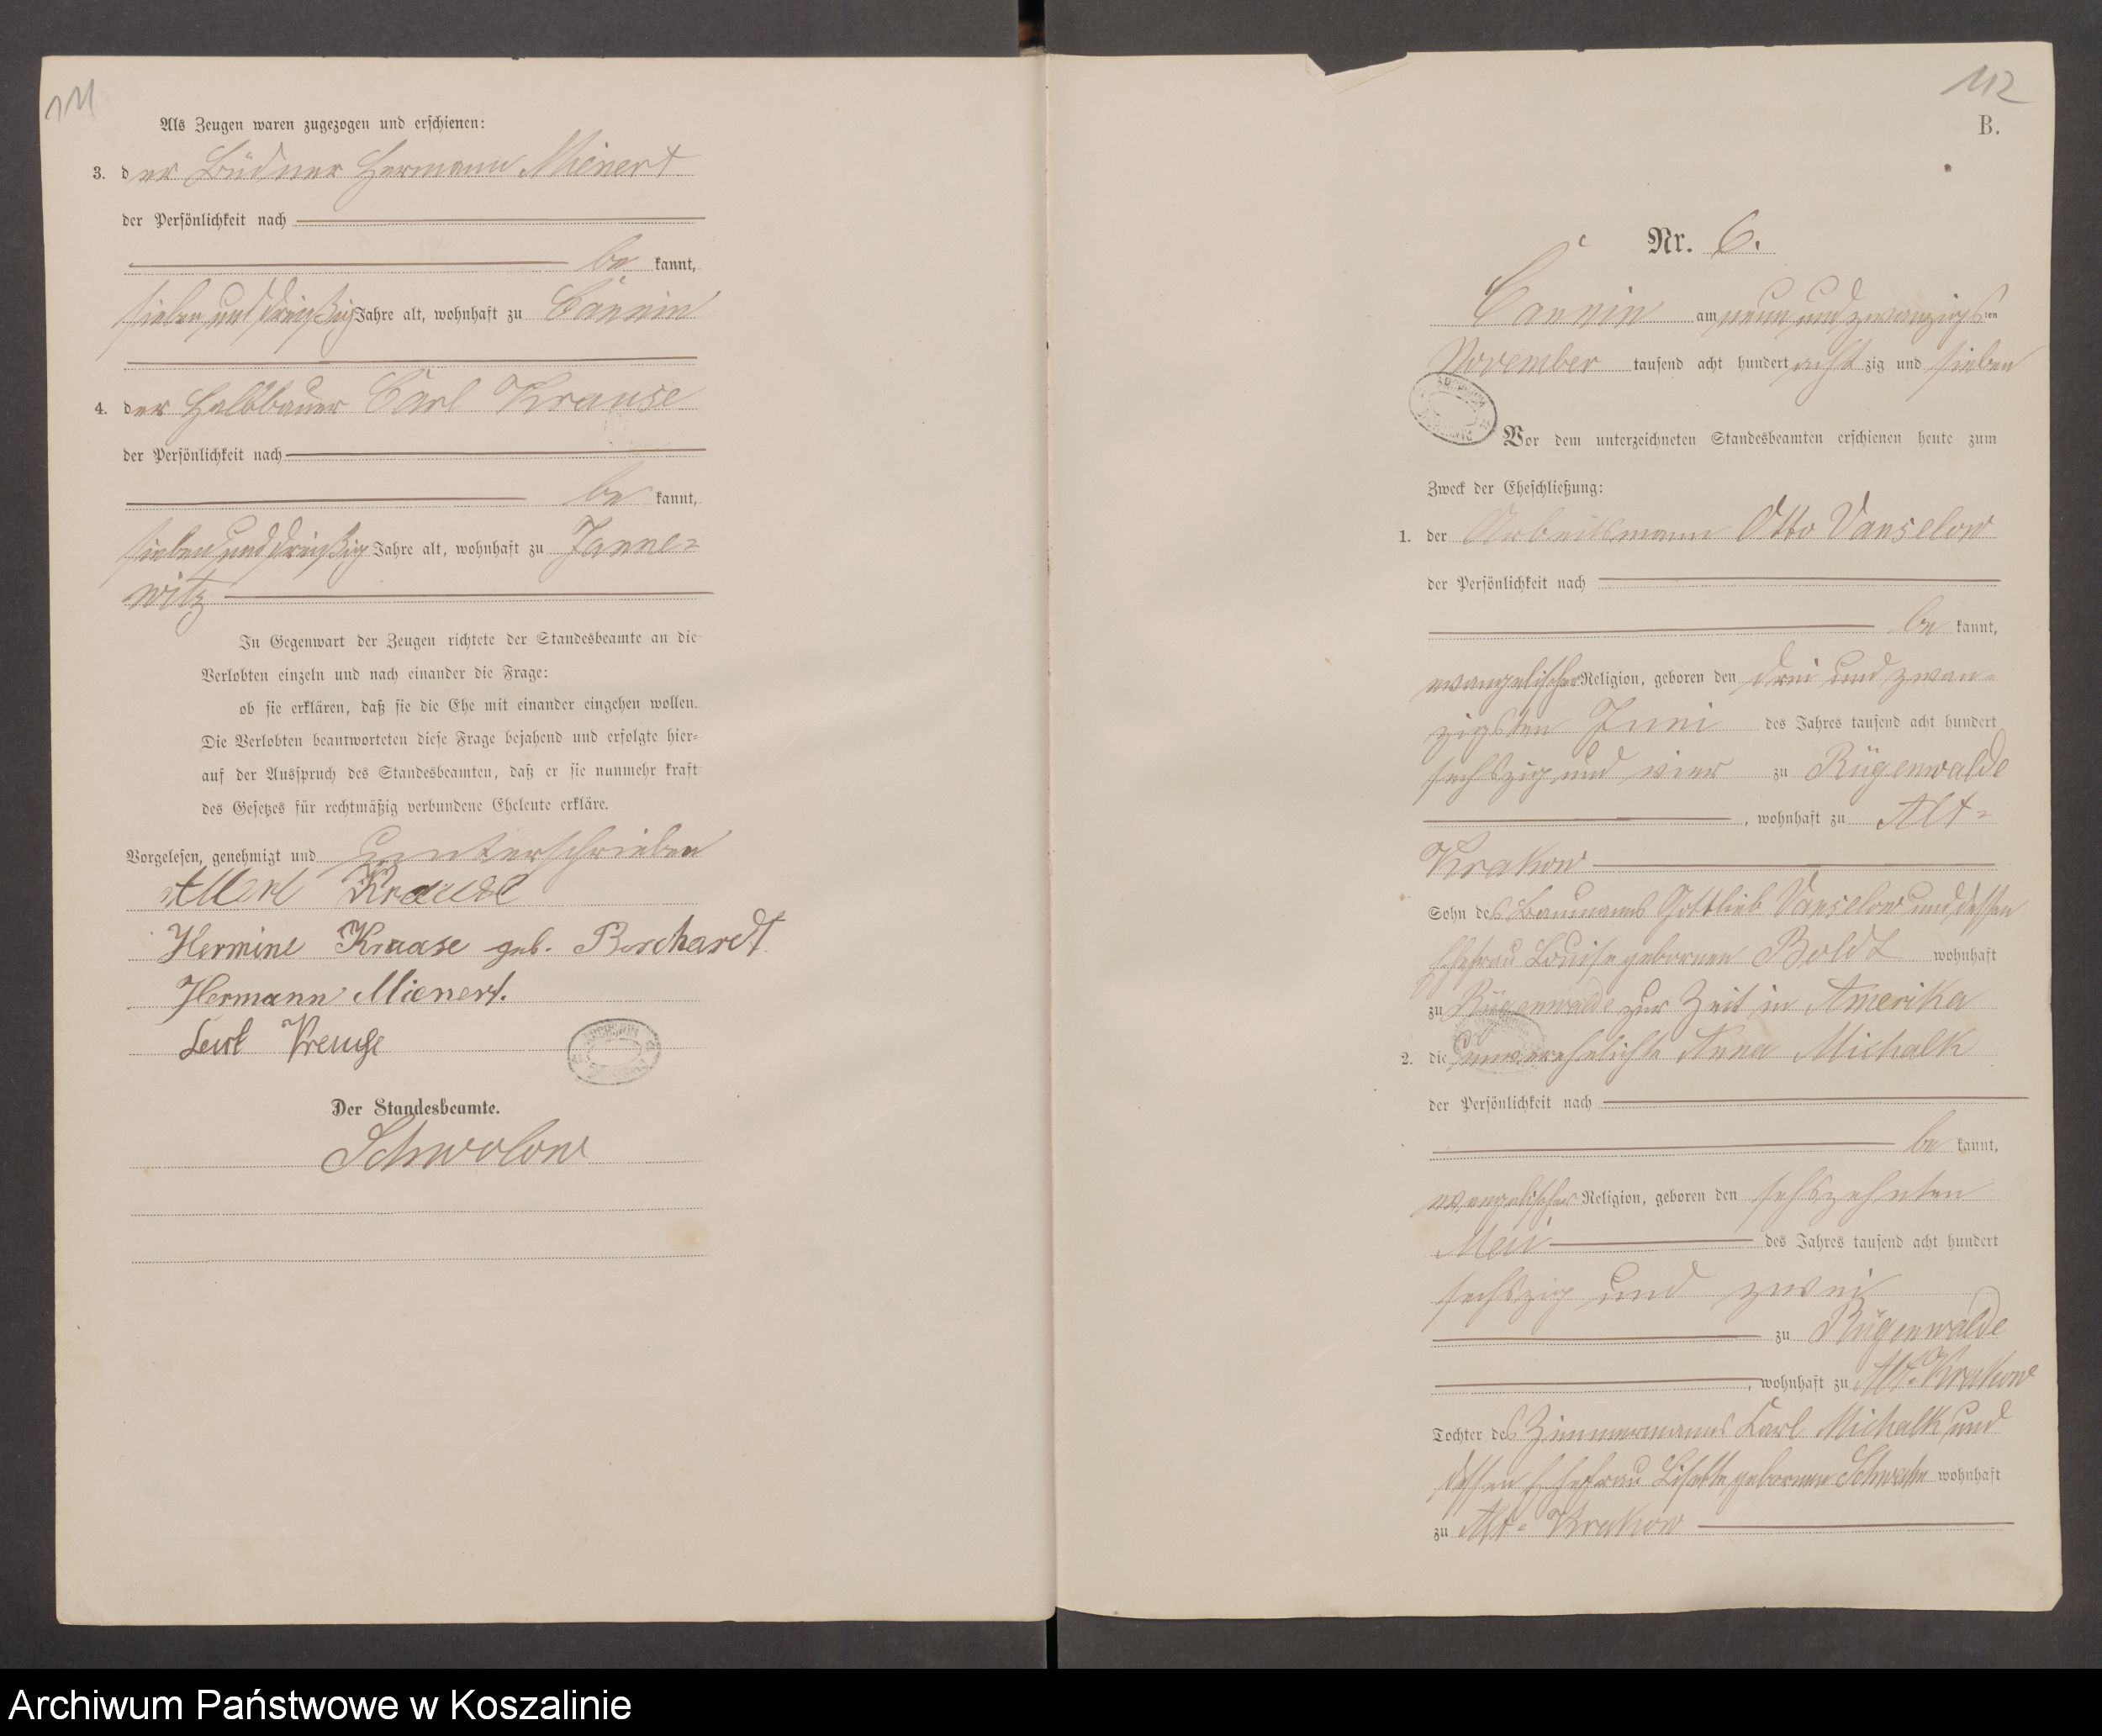 111
Als Zeugen waren zugezogen und erschienen:
3. der Büdner Hermann Mienert
der Persönlichkeit nach
be kannt,
sieben und dreißig Jahre alt, wohnhaft zu Cannin
4. der Halbbauer Carl Krause
der Persönlichkeit nach
be kannt,
sieben und dreißig Jahre alt, wohnhaft zu Janne=
witz
In Gegenwart der Zeugen richtete der Standesbeamte an die
Verlobten einzeln und nach einander die Frage:
ob sie erklären, daß sie die Ehe mit einander eingehen wollen.
Die Verlobten beantworteten diese Frage bejahend und erfolgte hier=
auf der Ausspruch des Standesbeamten, daß er sie nunmehr kraft
des Gesetzes für rechtmäßig verbundene Eheleute erkläre.
Vorgelesen, genehmigt und unterschrieben
Albert Krause
Hermine Kraase geb. Borchardt
Hermann Mienert.
Carl Krause
Der Standesbeamte.
Schwolow
112
B.
Nr. 6.
Cannin am neun und zwanzigsten
November tausend acht hundert acht zig und sieben
Vor dem unterzeichneten Standesbeamten erschienen heute zum
Zweck der Eheschließung:
1. der Arbeitsmann Otto Vanselow
der Persönlichkeit nach
be kannt,
evangelischer Religion, geboren den drei und zwan=
zigsten Juni des Jahres tausend acht hundert
sechszig und vier zu Rügenwalde
, wohnhaft zu Alt=
Krakow
Sohn des Baumanns Gottlieb Vanselow und dessen
Ehefrau Louise geborenen Boldt wohnhaft
zu Rügenwalde zur Zeit in Amerika
2. die unverehelichte Anna Michalk
der Persönlichkeit nach
be kannt,
evangelischer Religion, geboren den sechszehnten
Mai des Jahres tausend acht hundert
sechszig und zwei
zu Rügenwalde
, wohnhaft zu Alt=Krakow
Tochter des Zimmermanns Karl Michalk und
dessen Ehefrau Lisette geborenen wohnhaft
zu Alt=Krakow
Archiwum Państwowe w Koszalinie